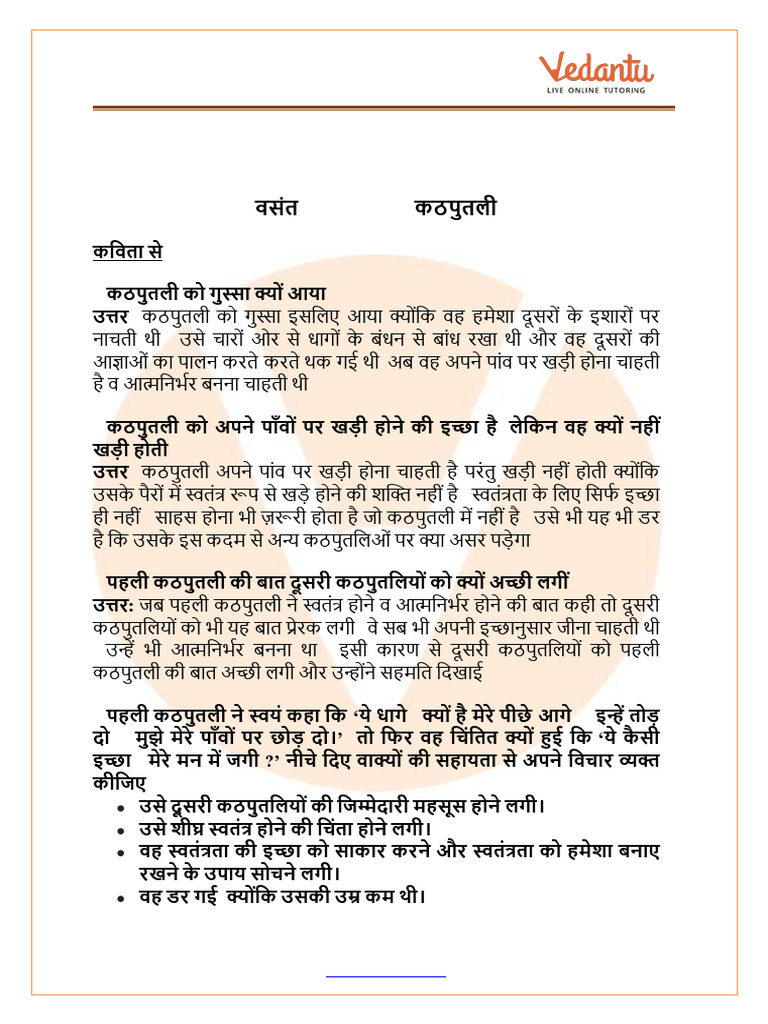 Vedantu
LIVE ONLINE TUTORING
वसंत कठपुतली
कविता से
कठपुतली को गुस्सा क्यों आया
उत्तर कठपुतली को गुस्सा इसलिए आया क्योंकि वह हमेशा दूसरों के इशारों पर
नाचती थी उसे चारों ओर से धागों के बंधन से बांध रखा थी और वह दूसरों की
आज्ञाओं का पालन करते करते थक गई थी अब वह अपने पांव पर खड़ी होना चाहती
है व आत्मनिर्भर बनना चाहती थी
कठपुतली को अपने पाँवों पर खड़ी होने की इच्छा है लेकिन वह क्यों नहीं
खड़ी होती
उत्तर कठपुतली अपने पांव पर खड़ी होना चाहती है परंतु खड़ी नहीं होती क्योंकि
उसके पैरों में स्वतंत्र रूप से खड़े होने की शक्ति नहीं है स्वतंत्रता के लिए सिर्फ इच्छा
ही नहीं साहस होना भी ज़रूरी होता है जो कठपुतली में नहीं है उसे भी यह भी डर
है कि उसके इस कदम से अन्य कठपुतलिओं पर क्या असर पड़ेगा
पहली कठपुतली की बात दूसरी कठपुतलियों को क्यों अच्छी लगीं
उत्तर: जब पहली कठपुतली ने स्वतंत्र होने व आत्मनिर्भर होने की बात कही तो दूसरी
कठपुतलियों को भी यह बात प्रेरक लगी वे सब भी अपनी इच्छानुसार जीना चाहती थी
उन्हें भी आत्मनिर्भर बनना था इसी कारण से दूसरी कठपुतलियों को पहली
कठपुतली की बात अच्छी लगी और उन्होंने सहमति दिखाई
पहली कठपुतली ने स्वयं कहा कि ‘ये धागे क्यों है मेरे पीछे आगे इन्हें तोड़
दो मुझे मेरे पाँवों पर छोड़ दो।’ तो फिर वह चिंतित क्यों हुई कि ‘ये कैसी
इच्छा मेरे मन में जगी ?’ नीचे दिए वाक्यों की सहायता से अपने विचार व्यक्त
कीजिए
• उसे दूसरी कठपुतलियों की जिम्मेदारी महसूस होने लगी।
• उसे शीघ्र स्वतंत्र होने की चिंता होने लगी।
• वह स्वतंत्रता की इच्छा को साकार करने और स्वतंत्रता को हमेशा बनाए
रखने के उपाय सोचने लगी।
• वह डर गई क्योंकि उसकी उम्र कम थी।